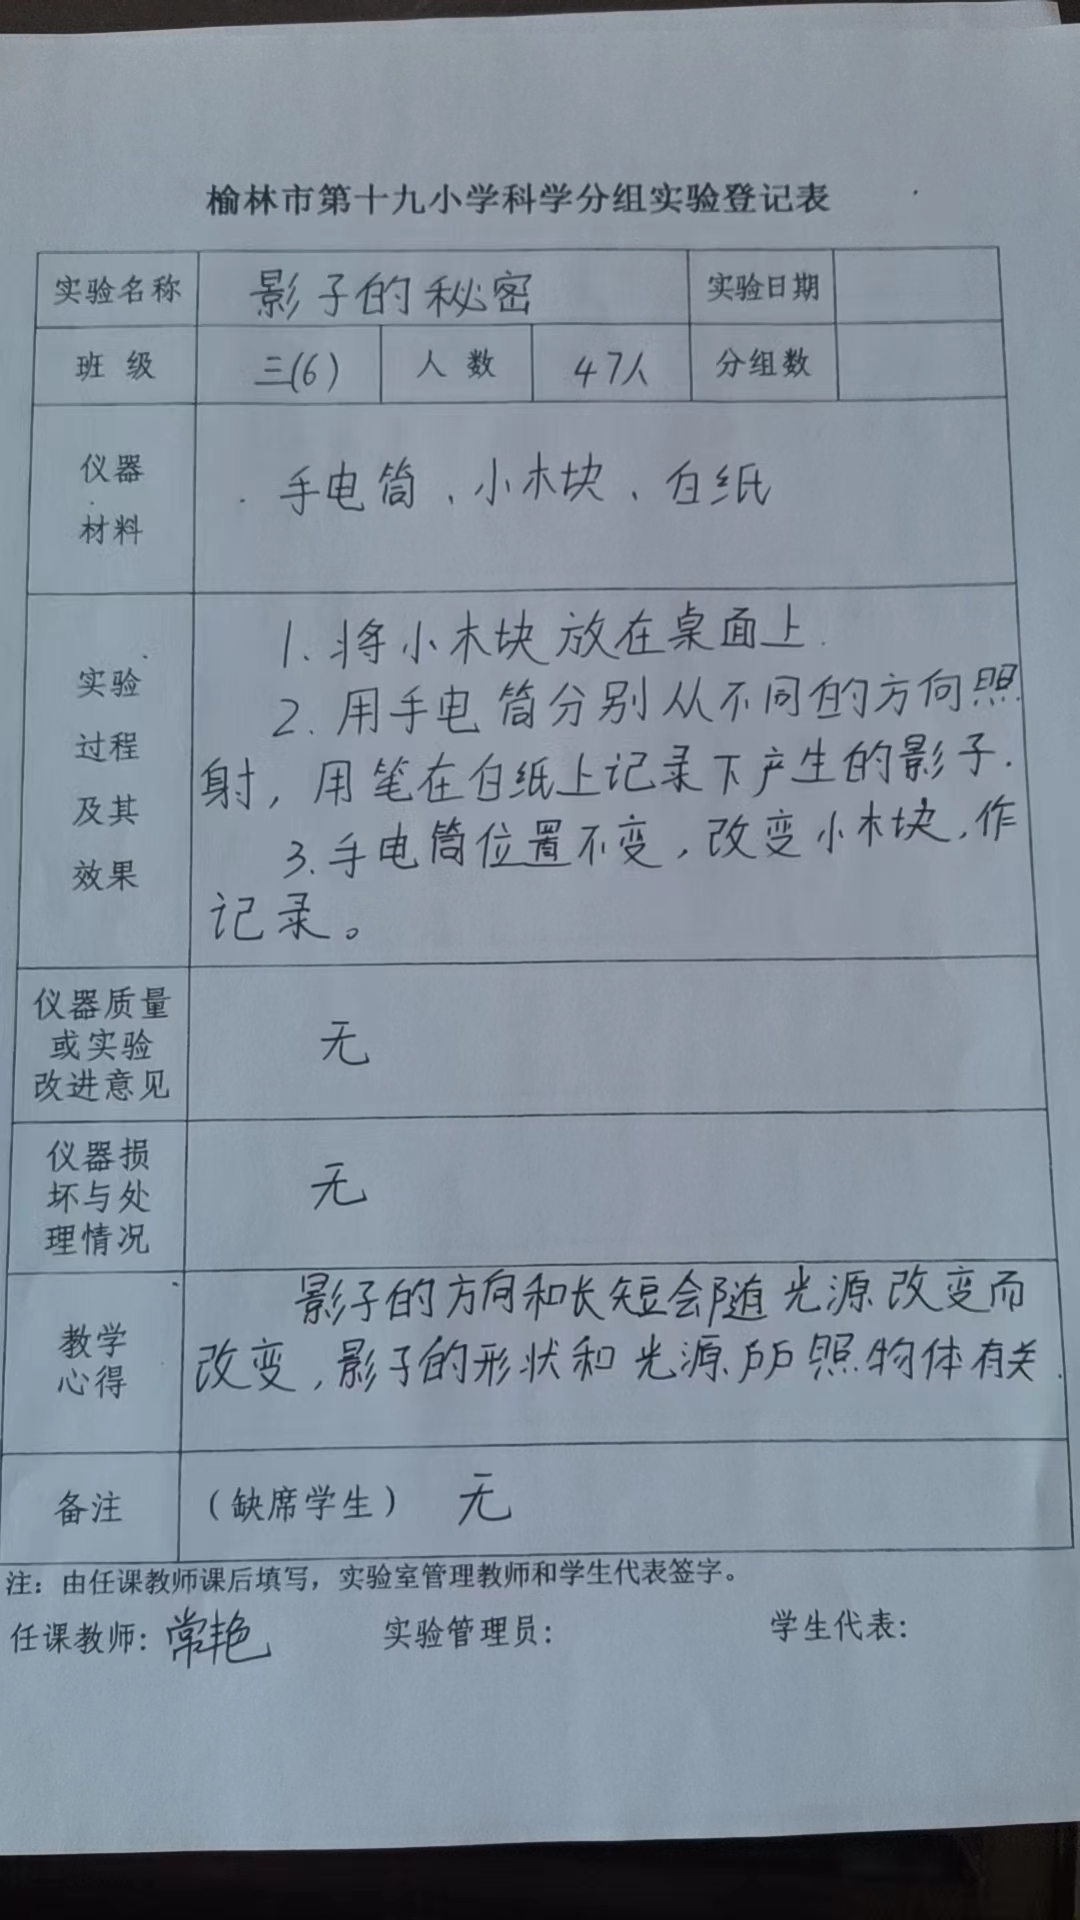 榆林市第十九小学科学分组实验登记表
实验名称 影子的秘密 实验日期
班 级 三(6) 人 数 47人 分组数
仪器
材料
手电筒、小木块、白纸
实验
过程
及其
效果
1.将小木块放在桌面上.
2.用手电筒分别从不同的方向照
射，用笔在白纸上记录下产生的影子.
3.手电筒位置不变，改变小木块，作
记录。
仪器质量
或实验
改进意见
无
仪器损
坏与处
理情况
无
教学
心得
影子的方向和长短会随光源改变而
改变，影子的形状和光源所照物体有关.
备注 （缺席学生） 无
注：由任课教师课后填写，实验室管理教师和学生代表签字。
任课教师：常艳 实验管理员： 学生代表：